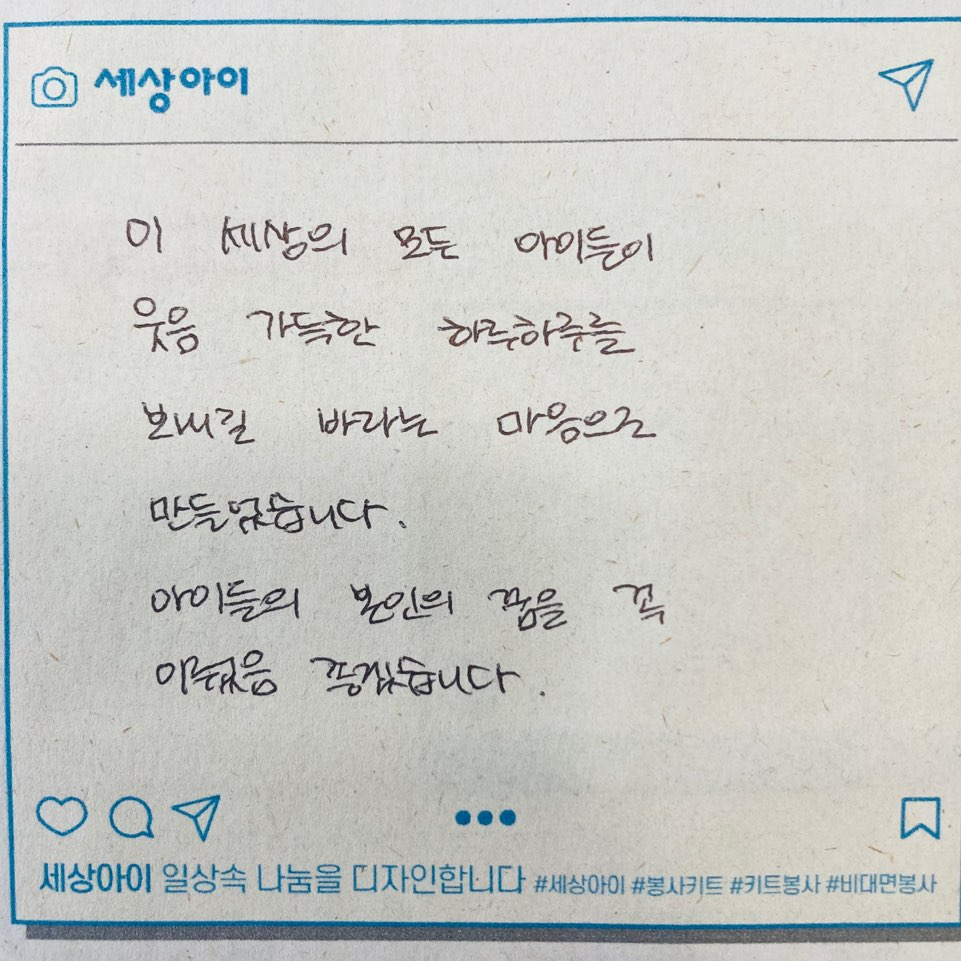 세상아이
이 세상의 모든 아이들이
웃음 가득한 하루하루를
보내길 바라는 마음으로
만들었습니다.
아이들의 본인의 꿈을 꼭
이뤘음 좋겠습니다.
세상아이 일상속 나눔을 디자인합니다 #세상아이 #봉사키트 #키트봉사 #비대면봉사